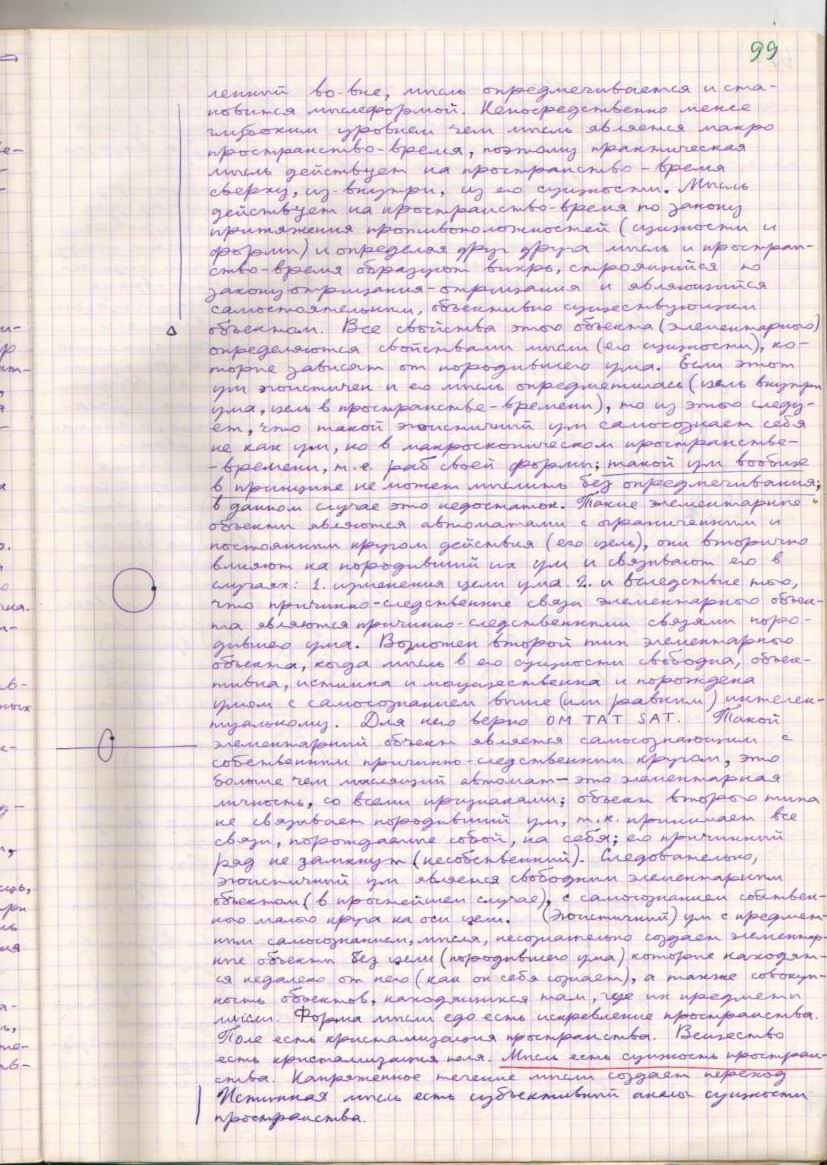 99
ленный во-вне, мысль опредмечивается и ста-
новится мыслеформой. Непосредственно менее
глубоким уровнем чем мысль является макро
пространство-время, поэтому практическая
мысль действует на пространство-время
сверху, из-внутри, из его сущности. Мысль
действует на пространство-время по закону
притяжения противоположностей (сущности и
формы) и определяя друг друга мысль и простран-
ство-время образуют вихрь, строящийся по
закону отрицания-отрицания и являющийся
самостоятельным, объективно существующим
объектом. Все свойства этого объекта (элементарного)
определяются свойствами мысли (его сущности), ко-
торые зависят от породившего ума. Если этот
ум эгоистичен и его мысль опредметилась (цель внутри
ума, цель в пространстве-времени), то из этого следу-
ет, что такой эгоистичный ум самосознает себя
не как ум, но в макроскопическом пространстве-
-времени, т.е. раб своей формы; такой ум вообще
в принципе не может мыслить без опредмечивания;
в данном случае это недостаток. Такие элементарные
объекты являются автоматами с ограниченным и
постоянным кругом действия (его цель), они вторично
влияют на породивший их ум и связывают его в
случаях: 1. изменения цели ума 2. и вследствие того,
что причинно-следственные связи элементарного объек-
та являются причинно-следственными связями поро-
дившего ума. Возможен второй тип элементарного
объекта, когда мысль в его сущности свободна, объек-
тивна, истинна и могущественна и порождена
умом с самосознанием выше (или равным) интелек-
туальному. Для него верно ОМ ТАТ SAT. Такой
элементарный объект является самосознающим с
собственным причинно-следственным кругом, это
больше чем мыслящий автомат — это элементарная
личность, со всеми признаками; объект второго типа
не связывает породивший ум, т.к. принимает все
связи, порождаемые собой, на себя; его причинный
ряд не замкнут (несобственный). Следовательно,
эгоистичный ум является свободным элементарным
объектом (в простейшем случае), с самосознанием собствен-
ного малого круга на оси цели. (Эгоистичный) ум с предмет-
ным самосознанием, мысля, несознательно создает элементар-
ные объекты без цели (породившего ума) которые находят-
ся недалеко от него (как он себя сознает), а также совокуп-
ность объектов, находящихся там, где их предметы
мысли. Форма мысли едо есть искревление пространства.
Поле есть кристализация пространства. Вещество
есть кристализация поля. Мысль есть сущность простран-
ства. Напряженное течение мысли создает переход
Истинная мысль есть субъективный аналог сущности
пространства.